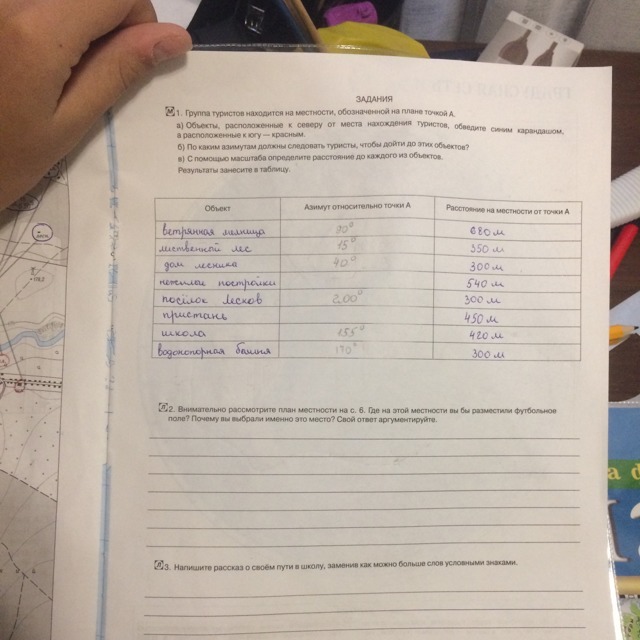 ЗАДАНИЯ
1. Группа туристов находится на местности, обозначенной на плане точкой А.
а) Объекты, расположенные к северу от места нахождения туристов, обведите синим карандашом,
а расположенные к югу — красным.
б) По каким азимутам должны следовать туристы, чтобы дойти до этих объектов?
в) С помощью масштаба определите расстояние до каждого из объектов.
Результаты занесите в таблицу.
Объект Азимут относительно точки А Расстояние на местности от точки А
ветрянная мельница 90° 680 м
лиственный лес 15° 350 м
дом лесника 40° 300 м
нежилые постройки 540 м
посёлок Лесков 200° 300 м
пристань 450 м
школа 155° 420 м
водонопорная башня 170° 300 м
2. Внимательно рассмотрите план местности на с. 6. Где на этой местности вы бы разместили футбольное
поле? Почему вы выбрали именно это место? Свой ответ аргументируйте.
3. Напишите рассказ о своём пути в школу, заменив как можно больше слов условными знаками.